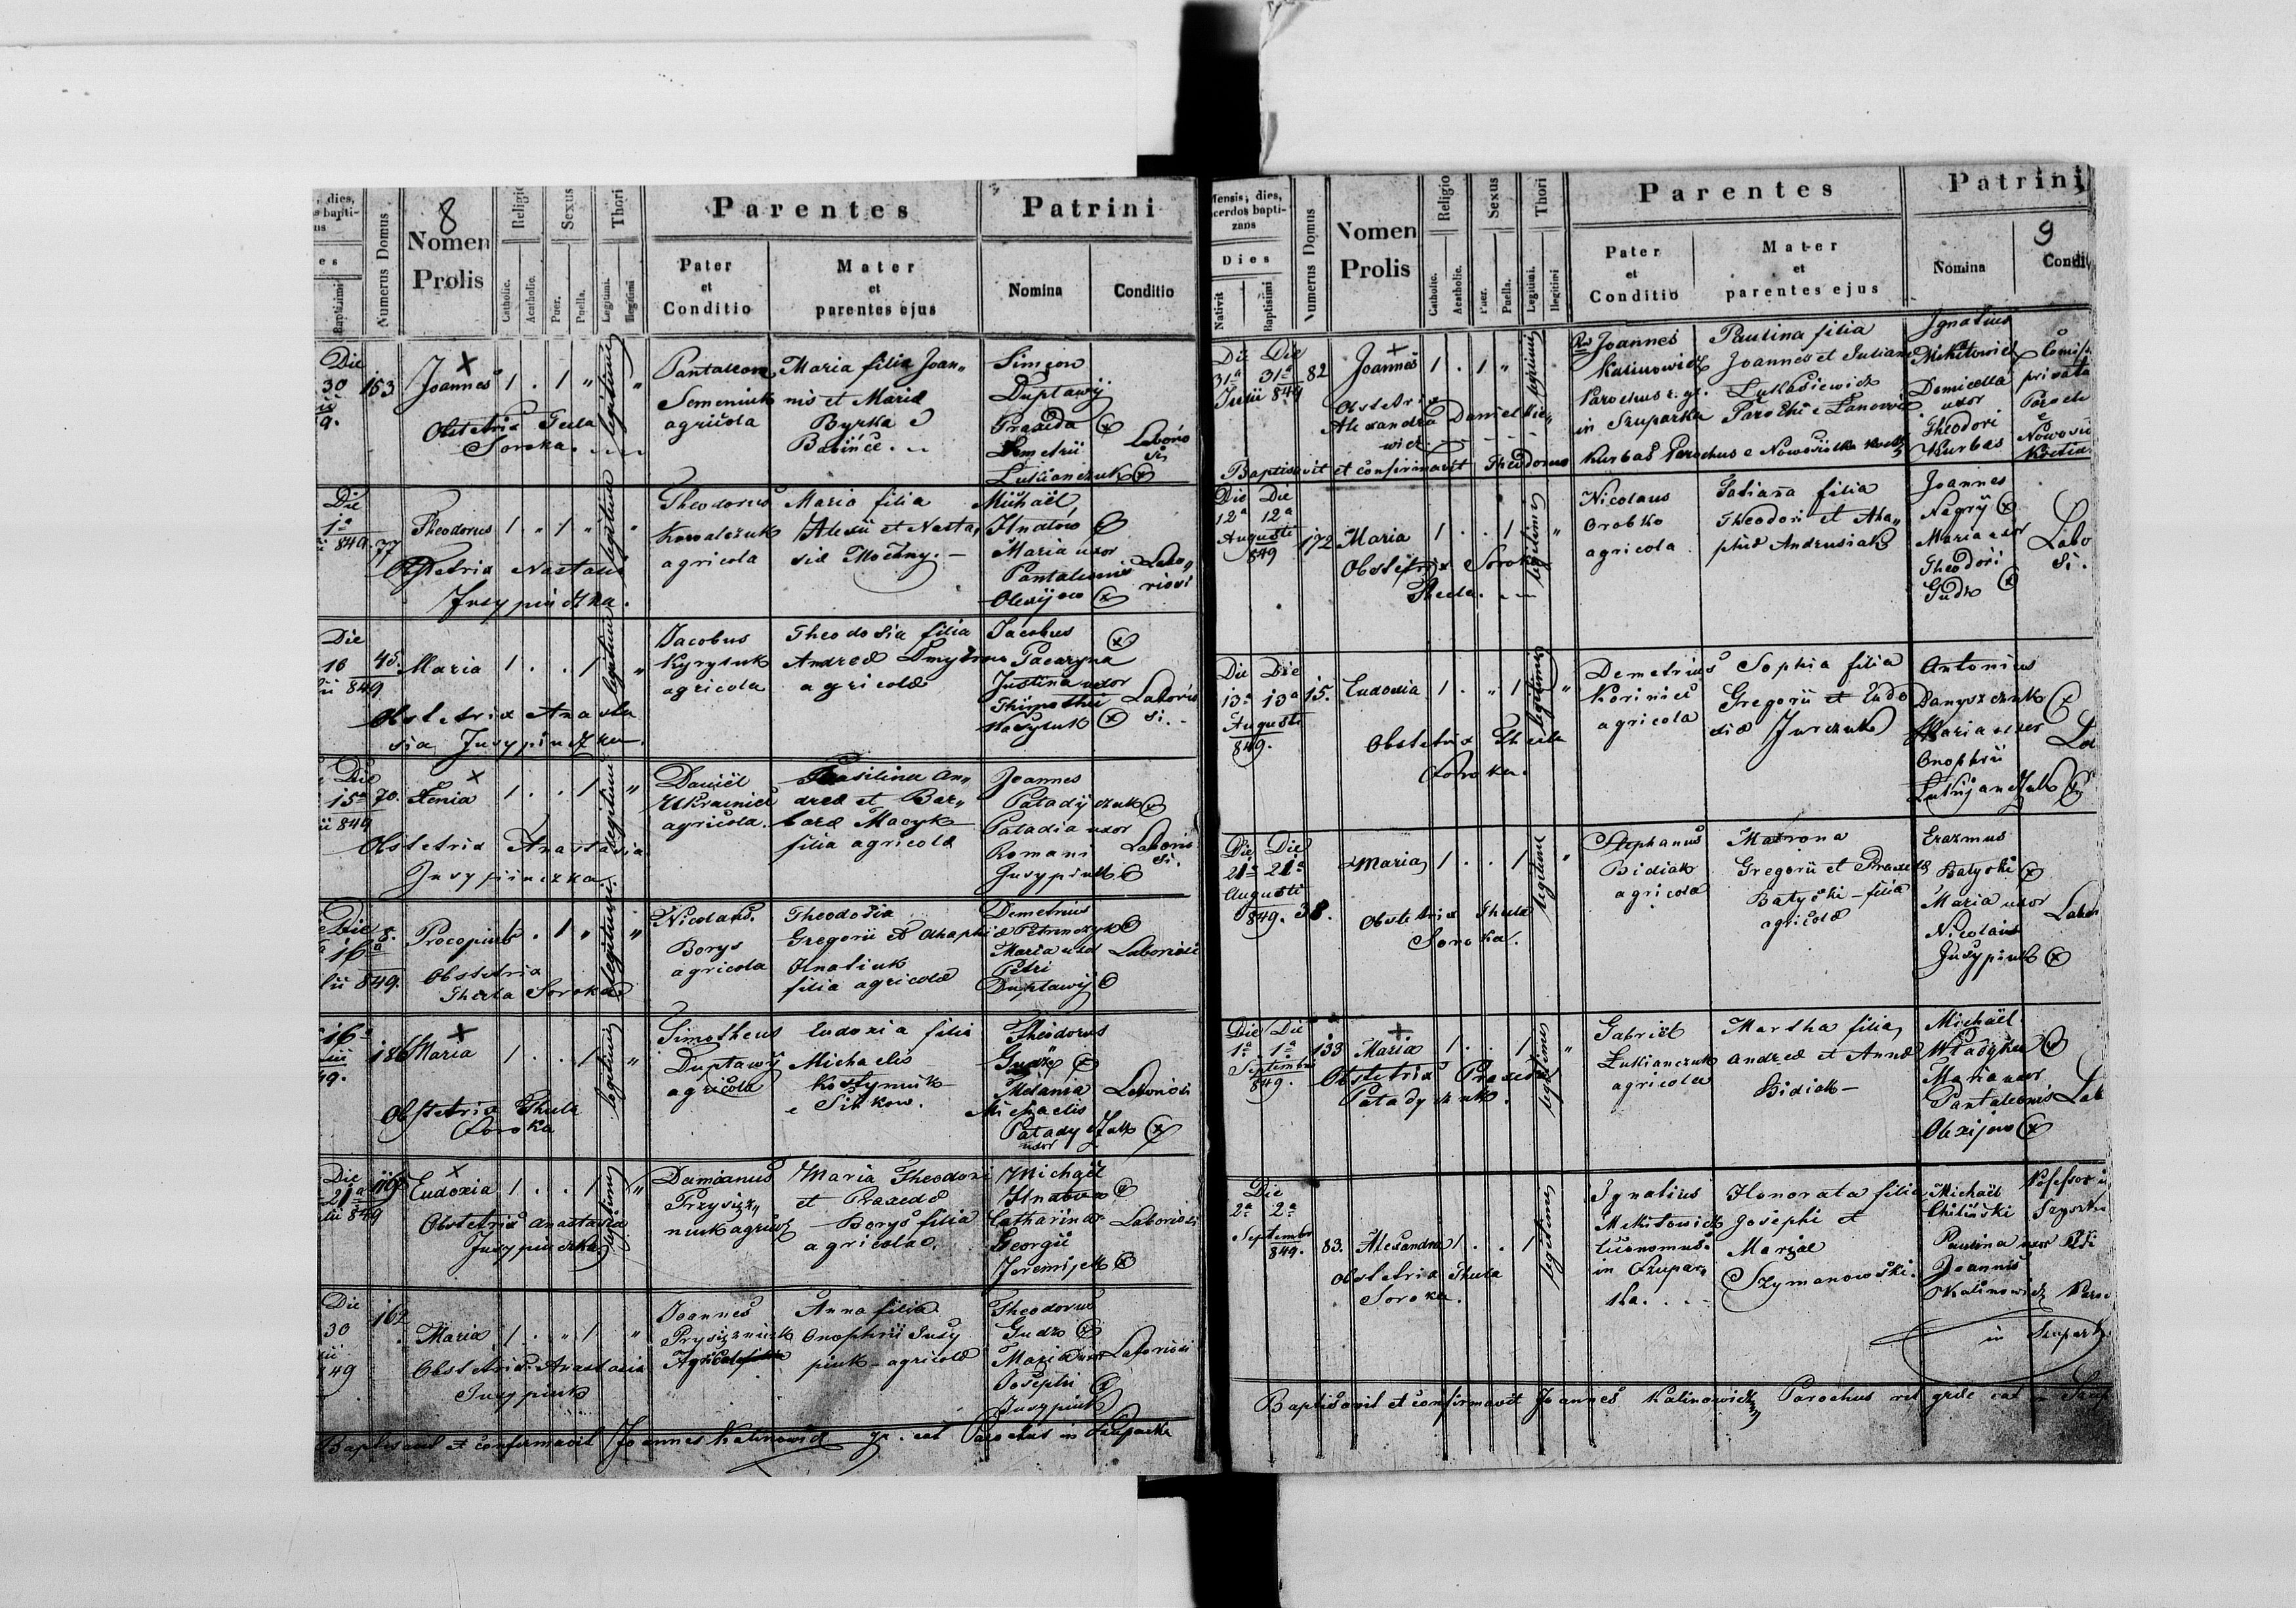 8
, dies,
s bapti-
us
es
Baptisimi
Numerus Domus
Nomen
Prolis
Religio
Catholic.
Acatholic.
Sexus
Puer.
Puella.
Thori
Legtimi.
Illegitimi
Parentes
Pater
et
Conditio
Mater
et
parentes ejus
Patrini
Nomina
Conditio
Die
30
9.
153
Joannes 1 . 1 "
legitimi
"
Obstetrix Tecla
Soroka.
Pantaleon
Semeniuk
agricola
Maria filia Joan„
nis et Maria
Byrka e
Babińce.
Simeon
Duptawy
Praxeda
Demetrii
Lukianczuk
Laborio
si
Die
1a
849.
77
Theodorus 1 " 1 "
Obstetrix Nastasia
Jusypinczka.
Theodorus
Kowalczuk
agricola
Maria filia
Alexii et Nasta„
sia Moczny.
Michaël
Hnatów
Maria uxor
Pantaleonis
Olexijow
Labo
riosi
Die
16
849
45.
Maria 1 . . 1 "
Obstetrix Anasta
sia Jusypinczka
Jacobus
Kyryluk
agricola
Theodosia filia
Andreae Dmytrow
agricolae
Jacobus
Pacaryna
Justina uxor
Thimothei
Laborio
si.
Die
15a
849
70.
Xenia 1 . . 1 "
Obstetrix Anastasia
Jusypinczka
Daniël
Ukrainiec
agricola.
Wasilina An„
dreae et Bar„
barae Macyk
filia agricolae
Joannes
Patadijczuk
Patadia uxor
Romani
Jusypiuk
Laborio
si.
Die
16a
lii 849.
8.
Procopius . 1 " "
Obstetrix
Thecla Soroka
Nicolaus
Borys
agricola
Theodosia
Gregorii et Ahaphiae
Hnatiuk
filia agricolae
Demetrius
Petrenczyk
Maria uxor
Petri
Duptawij
Laboriosi
16a
49.
186
Maria 1 . . 1 "
legitimi
Obstetrix Thecla
Soroka
Timotheus
Duptawy
agricola
Eudoxia filia
Michaelis
Kostyniuk
e Sinkow.
Theodorus
Gudz
Melania
Michaelis
Patadyczuk
uxor
Laboriosi
Die
21a
lii 849
116
Eudoxia 1 . . 1 "
Obstetrix Anastasia
Jusypinczka
Damianus
Przysiez„
niuk agricola
Maria Theodori
et Praxedae
Borys filia
agricolae.
Michaël
Hnatow
Catharina
Georgii
Jeremijek
Laboriosi
Die
30
49
162
Maria 1 . " 1 "
Obstetrix Anastasia
Jusypiuk
Joannes
Prysizniuk
Agricola
Anna filia
Onophrii Jusy
piuk - agricolae
Theodorus
Gudz
Maria uxor
Josephi
Jusypiuk
Laboriosi
Baptisavit et confirmavit Joannes Kalinowicz gr. cat Parochus in Szuparka
9
Mensis, dies,
cerdos bapti-
zans
Dies
Nativit
Baptisimi
Numerus Domus
Nomen
Prolis
Religio
Catholic.
Acatholic.
Sexus
Puer.
Puella.
Thori
Legtimi.
Ilegitimi
Parentes
Pater
et
Conditio
Mater
et
parentes ejus
Patrini
Nomina
Condi
Die Die
31a 31a
Julii 849
82
Joannes 1 . 1 "
legitimi
Obstetrix
Alexandra Danielkie„
wicz
Joannes
Kalinowicz
Parochus r. gr.
in Szuparka
Paulina filia
Joannes et Juliane
Lukasiewicz
Parochi e Lanowce
Ignatius
Mikitowicz
Domicella
uxor
Theodori
Kurbas
privata
Baptisavit et confirmavit Theodorus Kurbas Parochus e Nowosiolka
Die Die
12a 12a
Augusti
849
172
Maria 1 . . 1 "
legitimi
Obstetrix Soroka
Thecla.
Nicolaus
Orobko
agricola
Tatiana filia
Theodori et Aha„
phiae Andrusiak
Joannes
Negrij
Maria uxor
Theodori
Gudz
Labo
si.
Die Die
13a 13a
Augusti
849.
15.
Eudoxia 1 . " 1 "
legitimi
Obstetrix Thecla
Soroka.
Demetrius
Koriniec
agricola
Sophia filia
Gregorii et Eudo
xiae Jurczuk
Antonius
Danyszczuk
Maria uxor
Onophrii
Lukijanczuk
Die Die
21a 21a
Augusti
849. 38.
Maria 1 . . 1 "
legitimi
Obstetrix Thecla
Soroka.
Stephanus
Bidiak
agricola
Matrona
Gregorii et Praxedae
Batyski - filia
agricolae
Erazmus
Batyski
Maria uxor
Nicolaus
Jusypiuk
Labor
Die Die
1a 1a
Septembr
849.
133
Maria 1 . . 1 "
legitimi
Obstetrix Praxeda
Patadyczuk.
Gabriël
Lukianczuk
agricola
Martha filia
Andreae et Annae
Bidiak -
Michaël
Wladyka
Maria uxor
Pantaleonis
Olexijow
Lab
Die
2a 2a
Septembr
849.
83.
Alexandra 1 . . 1
legitimi
Obstetrix Thecla
Soroka.
Ignatius
Mikitowicz
in Szupar„
ka.
Honorata filia
Josephi et
Mariae
Szymanowski.
Michaël
Chiliński
Paulina uxor
Joannis
Kalinowicz
in Szupark
Baptisavit et confirmavit Joannes Kalinowicz Parochus rit graec cat